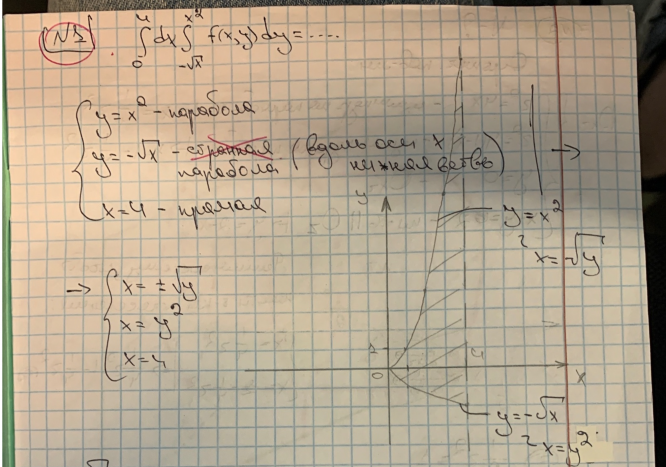 №1. ∫₀⁴ dx ∫_{-√x}^{x²} f(x,y) dy = ....
y = x² - парабола
y = -√x - странная парабола (вдоль оси x нижняя ветвь)
x = 4 - прямая
→
y
y = x²
x = √y
→
x = ±√y
x = y²
x = 4
1
4
0
x
y = -√x
x = y²